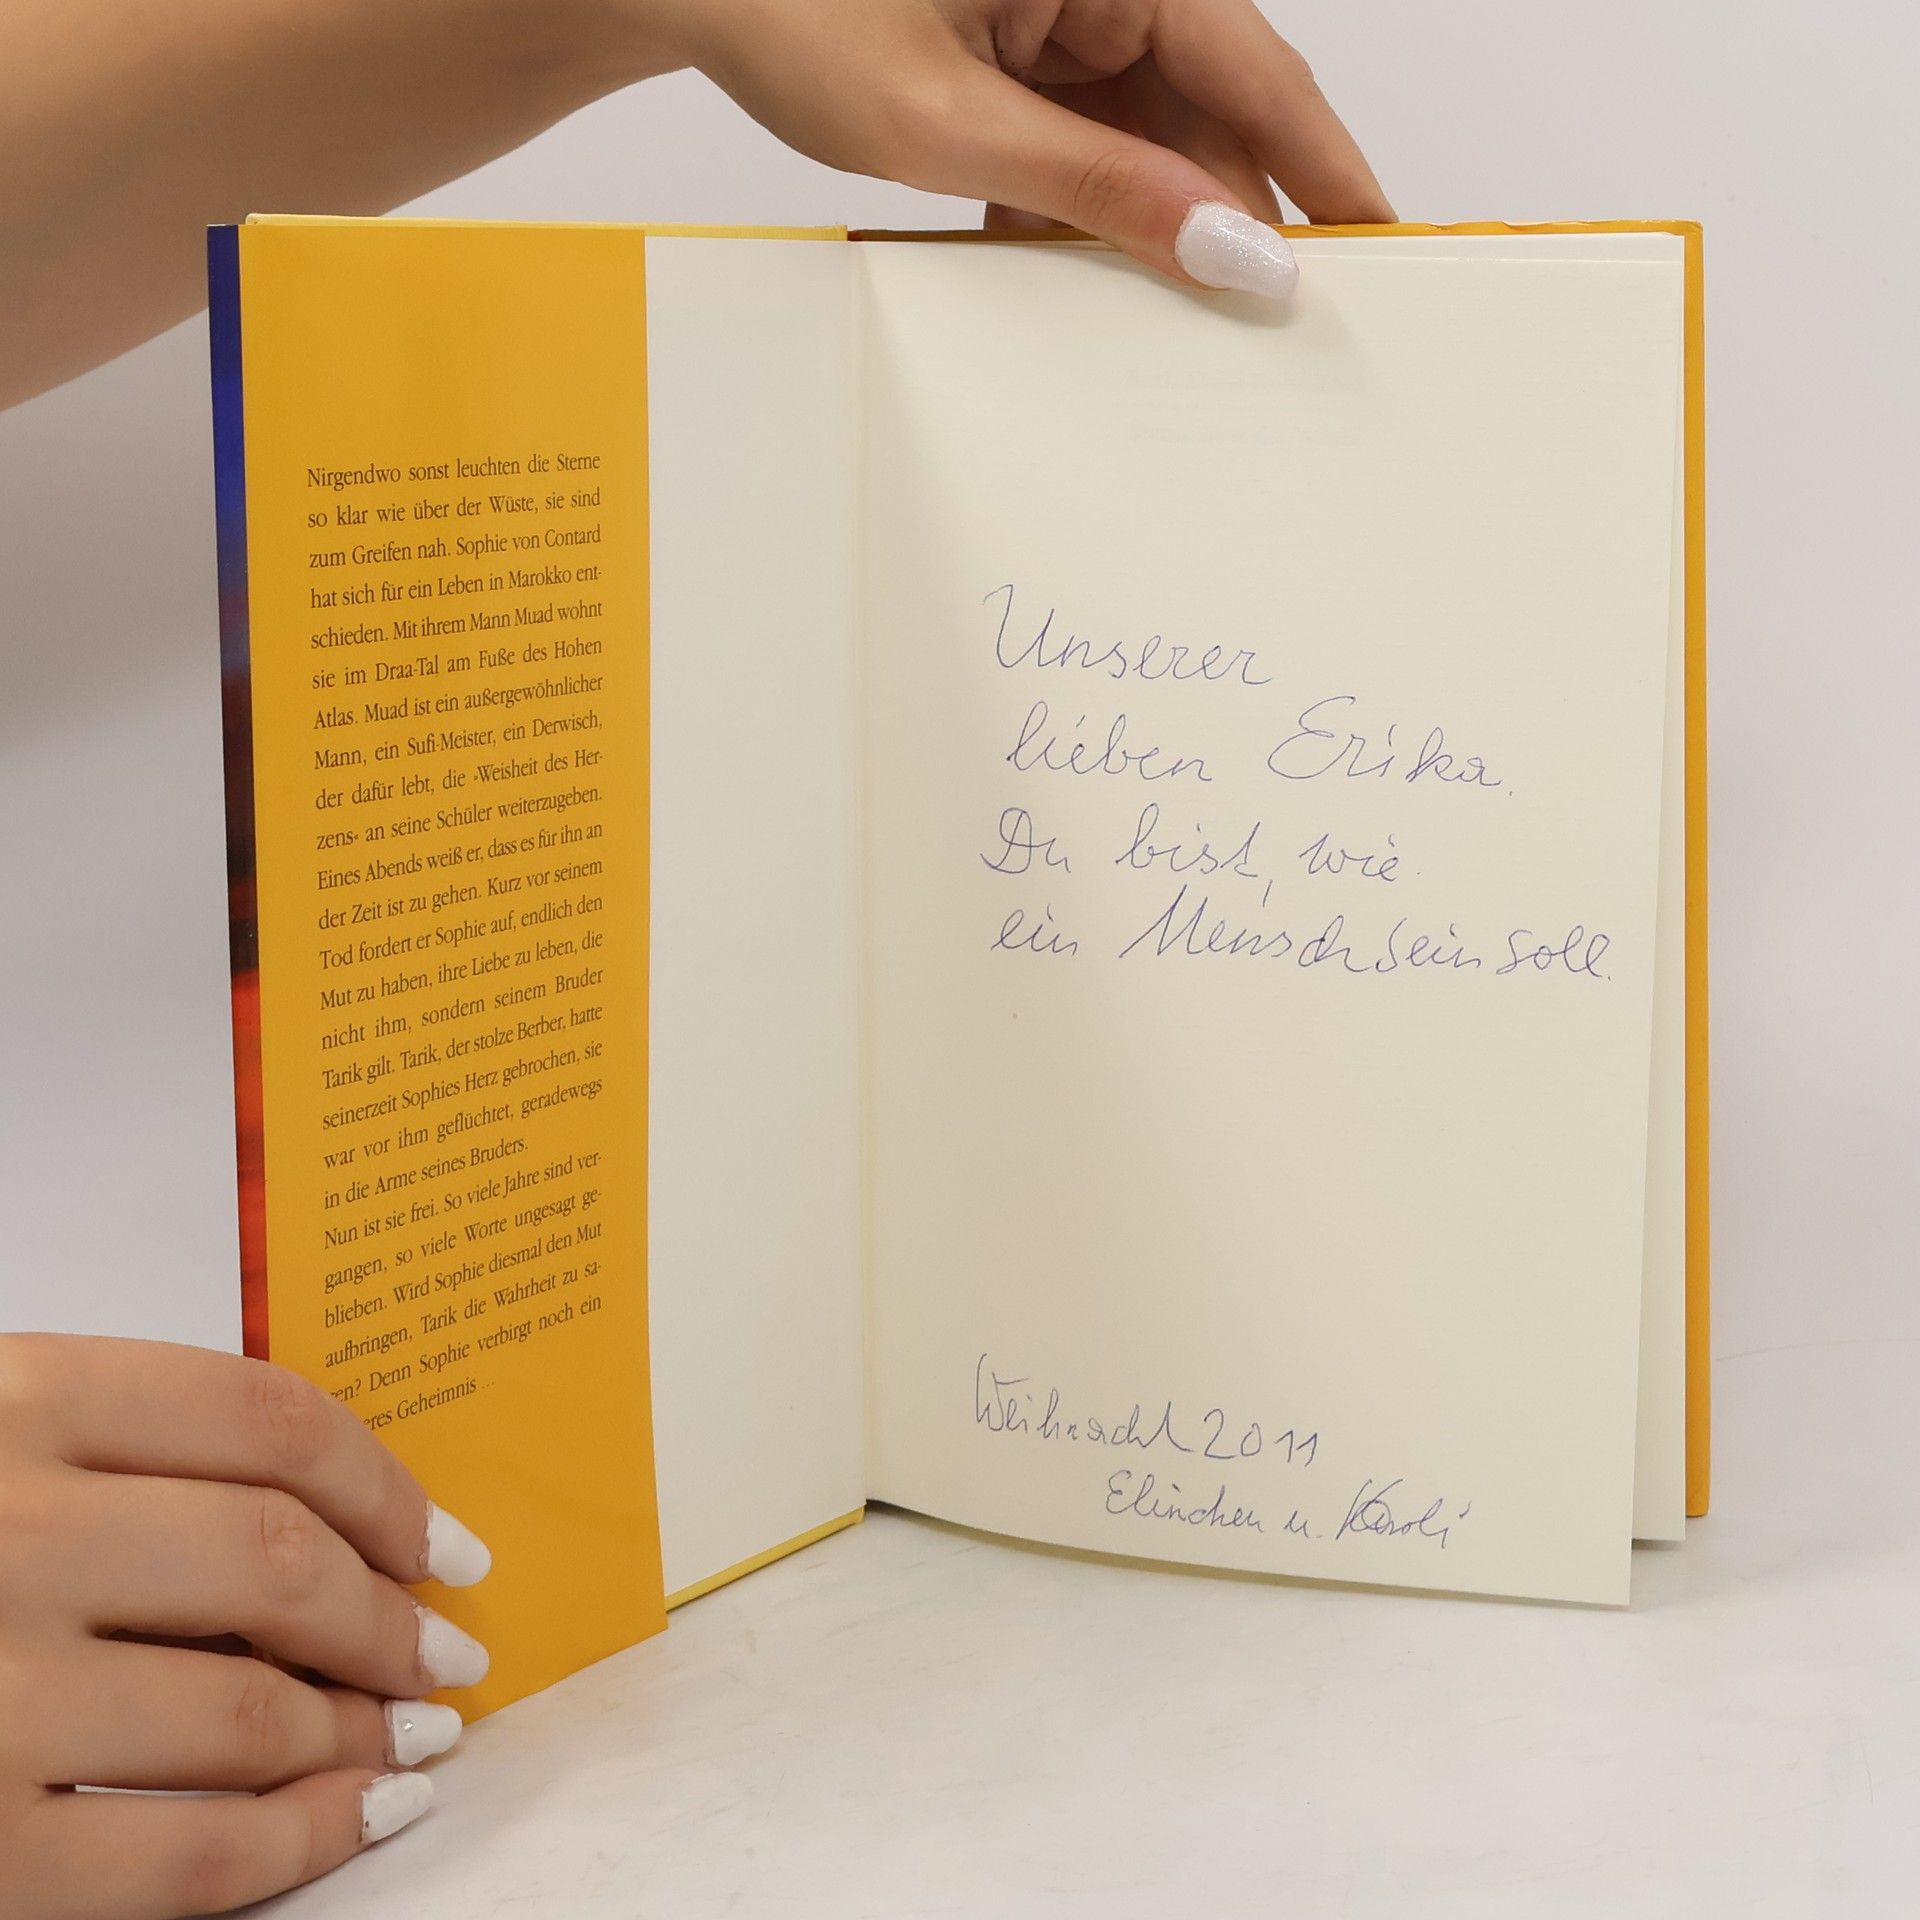 Nirgendwo sonst leuchten die Sterne
so klar wie über der Wüste, sie sind
zum Greifen nah. Sophie von Contard
hat sich für ein Leben in Marokko ent-
schieden. Mit ihrem Mann Muad wohnt
sie im Draa-Tal am Fuße des Hohen
Atlas. Muad ist ein außergewöhnlicher
Mann, ein Sufi-Meister, ein Derwisch,
der dafür lebt, die »Weisheit des Her-
zens« an seine Schüler weiterzugeben.
Eines Abends weiß er, dass es für ihn an
der Zeit ist zu gehen. Kurz vor seinem
Tod fordert er Sophie auf, endlich den
Mut zu haben, ihre Liebe zu leben, die
nicht ihm, sondern seinem Bruder
Tarik gilt. Tarik, der stolze Berber, hatte
seinerzeit Sophies Herz gebrochen, sie
war vor ihm geflüchtet, geradewegs
in die Arme seines Bruders.
Nun ist sie frei. So viele Jahre sind ver-
gangen, so viele Worte ungesagt ge-
blieben. Wird Sophie diesmal den Mut
aufbringen, Tarik die Wahrheit zu sa-
en? Denn Sophie verbirgt noch ein
eres Geheimnis ...
Unserer
lieben Erika.
Du bist, wie
ein Mensch sein soll.
Weihnacht 2011
Elinchen u. Karoli